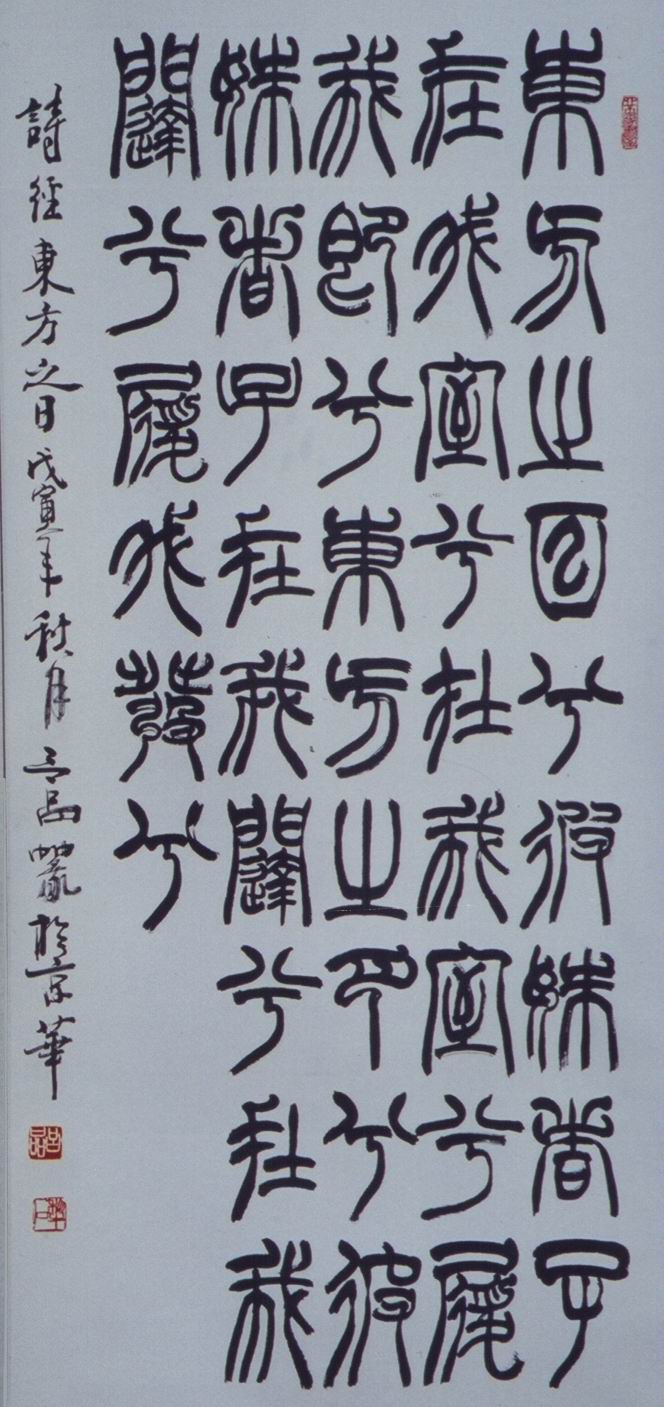 東方之日兮彼姝者子
在我室兮在我室兮履
我即兮東方之月兮彼
姝者子在我闥兮在我
闥兮履我發兮
詩經東方之日戊寅年秋月於京華